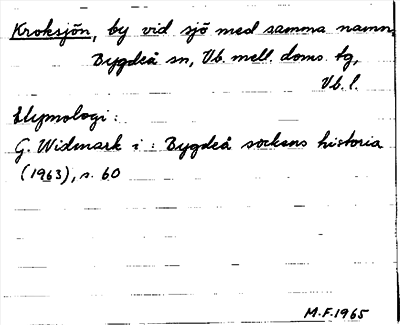 Kroksjön, by vid sjö med samma namn,
Bygdeå sn, Vb. mell. doms. tg,
Vb. l.
Etymologi:
G. Widmark i: Bygdeå sockens historia
(1963), s. 60
M.F. 1965